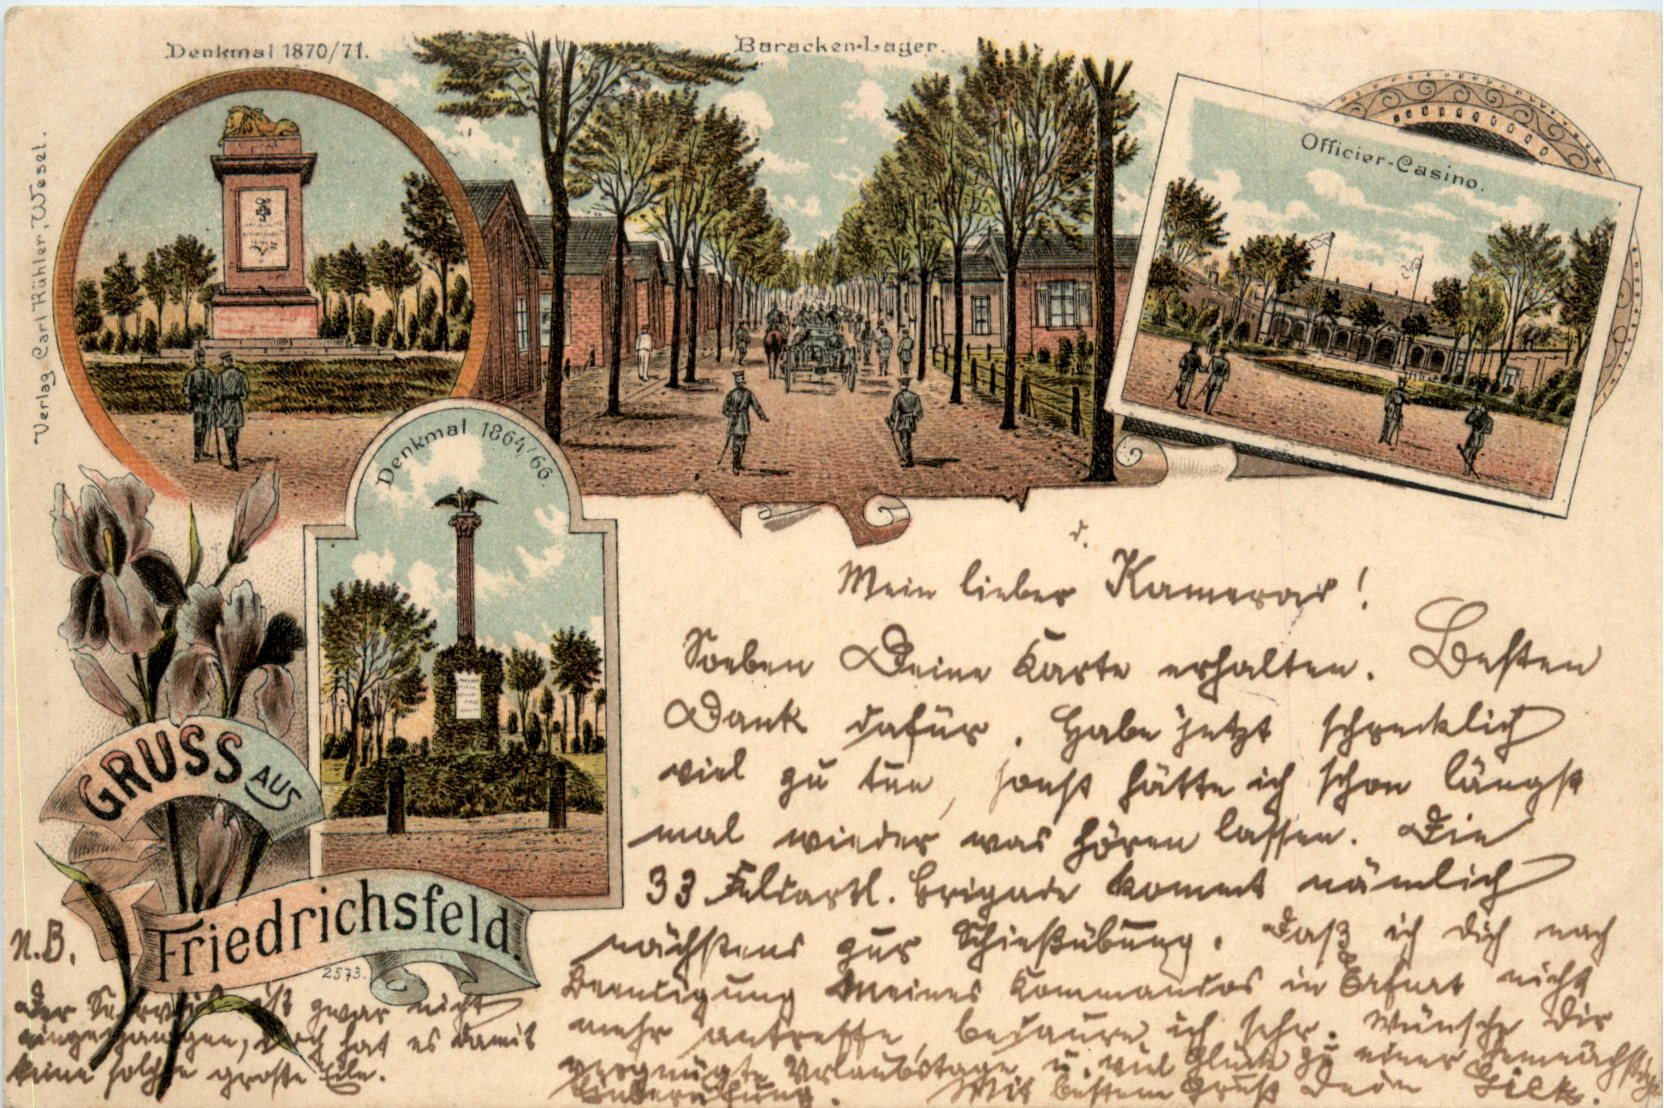 Denkmal 1870/71.
Baracken-Lager.
Officier-Casino.
Verlag Carl Kühler, Wesel.
Denkmal 1864/66.
GRUSS AUS
Friedrichsfeld.
2573.
Mein lieber Kamerad!
Soeben Deine Karte erhalten. Besten
Dank dafür. Habe jetzt schrecklich
viel zu tun, sonst hätte ich schon längst
mal wieder was hören lassen. Die
33 Feldartl. Brigade kommt nämlich
nächstens zur Schießübung. Daß ich Dich nach
Beendigung meines Kommandos in Erfurt nicht
mehr antreffe, bedaure ich sehr. Wünsche Dir
vergnügte Urlaubstage u. viel Glück zu einer demnächstigen
Einberufung. Mit bestem Gruß Dein
N.B.
Der ist zwar nicht
eingegangen, doch hat es damit
keine solche große Eile.